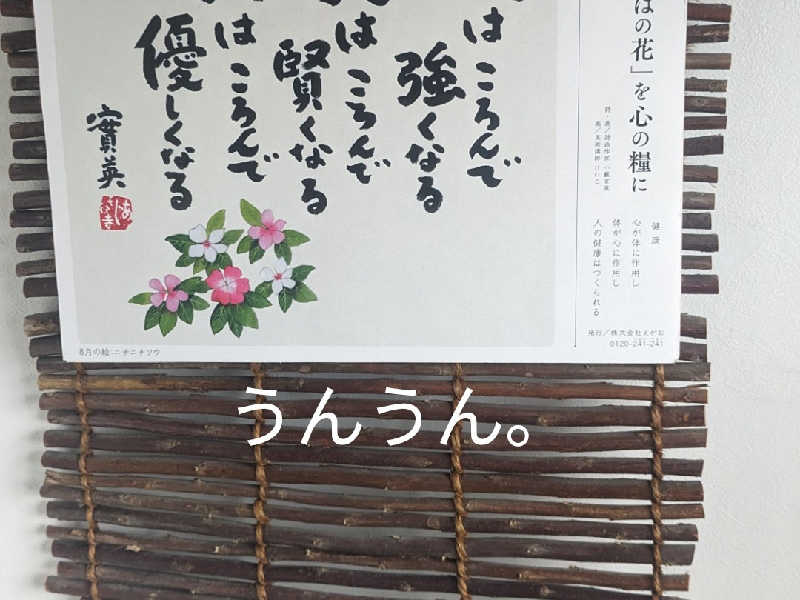 はの花」を心の糧に
健康
心が体に作用し
体が心に作用し
人の健康はつくられる
発行／株式会社えがお
0120-241-241
はころんで
強くなる
はころんで
賢くなる
はころんで
優しくなる
實英
8月の絵：ニチニチソウ
うんうん。